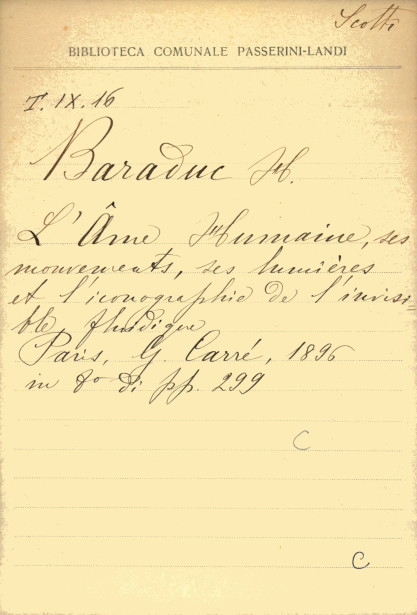 Scotti
BIBLIOTECA COMUNALE PASSERINI-LANDI
T. IX. 16
Baraduc H.
L'Âme Humaine, ses
mouvements, ses lumières
et l'iconographie de l'invisi=
ble fluidique
Paris, G. Carré, 1896
in 8º di pp. 299
C
C